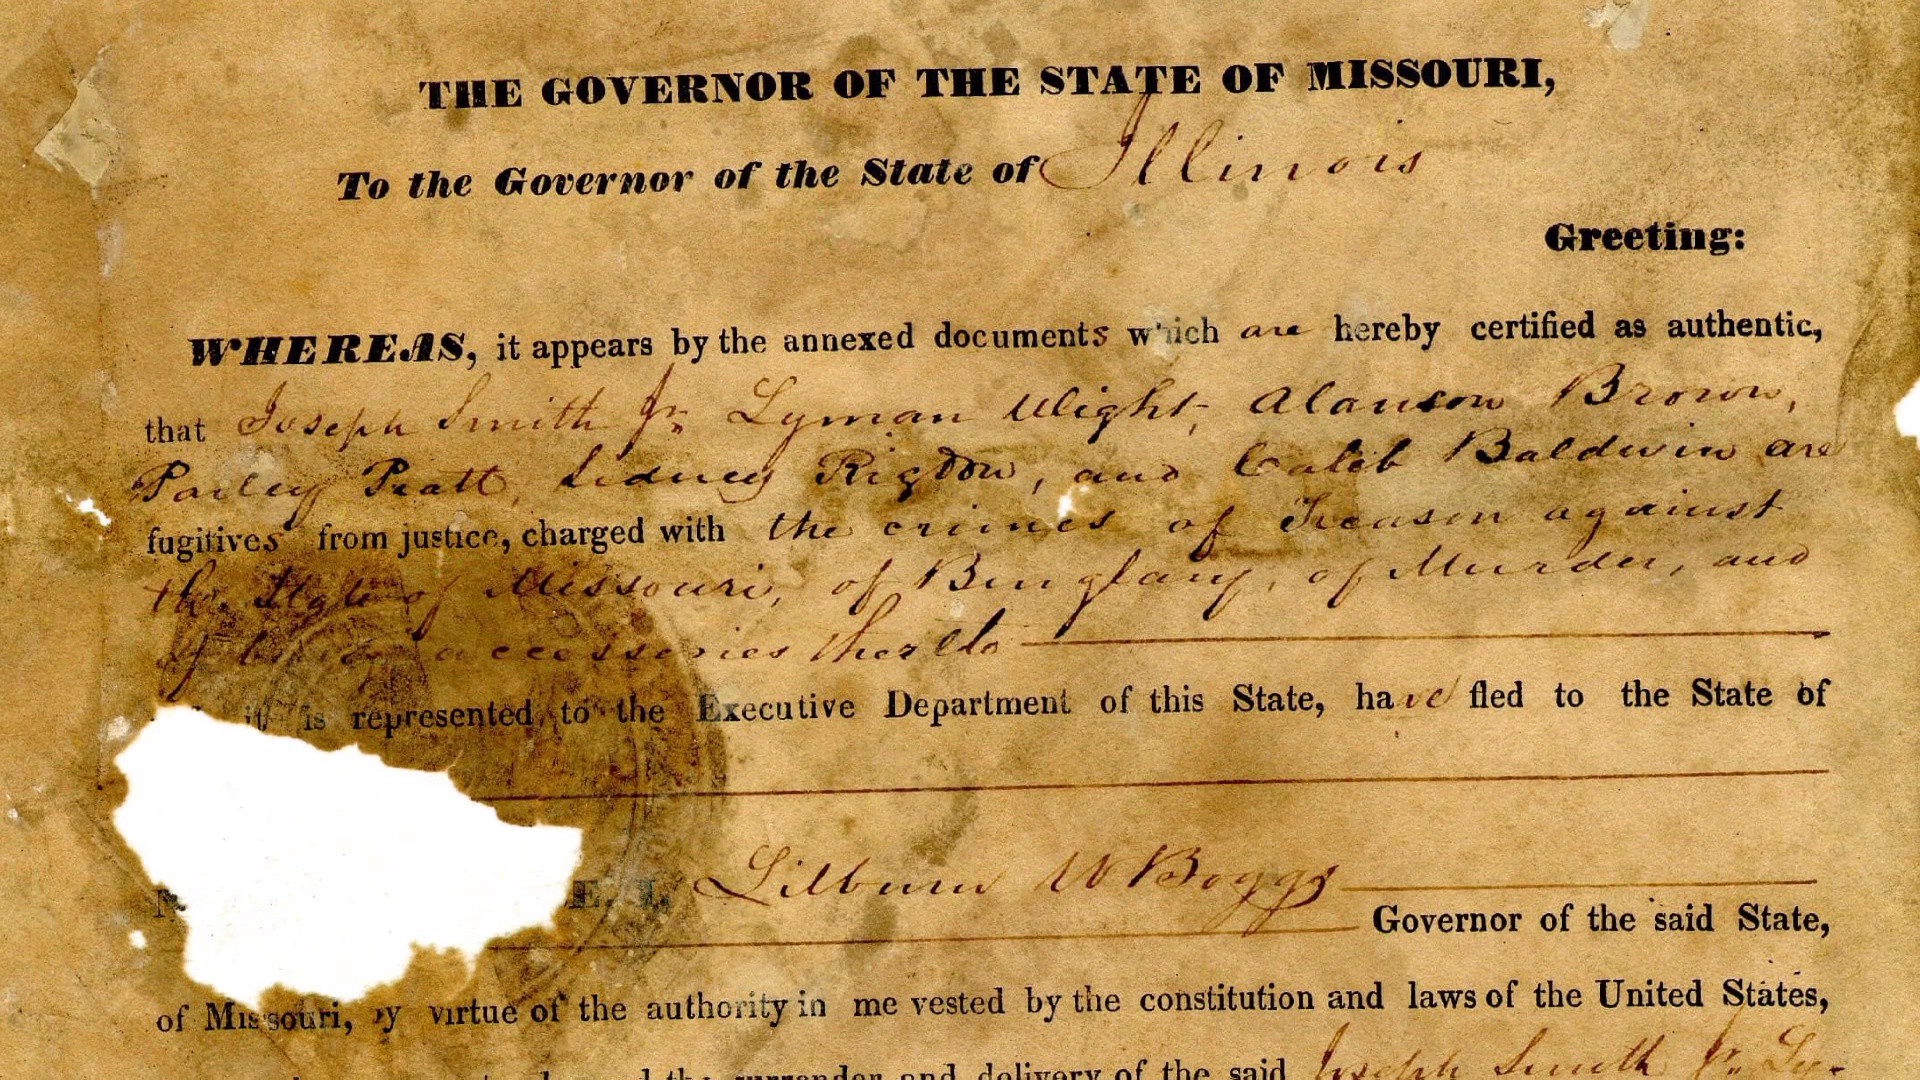 THE GOVERNOR OF THE STATE OF MISSOURI,
To the Governor of the State of Illinois
Greeting:
WHEREAS, it appears by the annexed documents which are hereby certified as authentic,
that Joseph Smith Jr. Lyman Wight, Alanson Brown,
Parley Pratt, Sidney Rigdon, and Caleb Baldwin are
fugitives from justice, charged with the crimes of Treason against
the State of Missouri, of Burglary, of Murder, and
of being accessories thereto
it is represented to the Executive Department of this State, have fled to the State of
E. I, Lilburn W Boggs
Governor of the said State,
of Missouri, by virtue of the authority in me vested by the constitution and laws of the United States,
the surrender and delivery of the said Joseph Smith Jr. Ly-